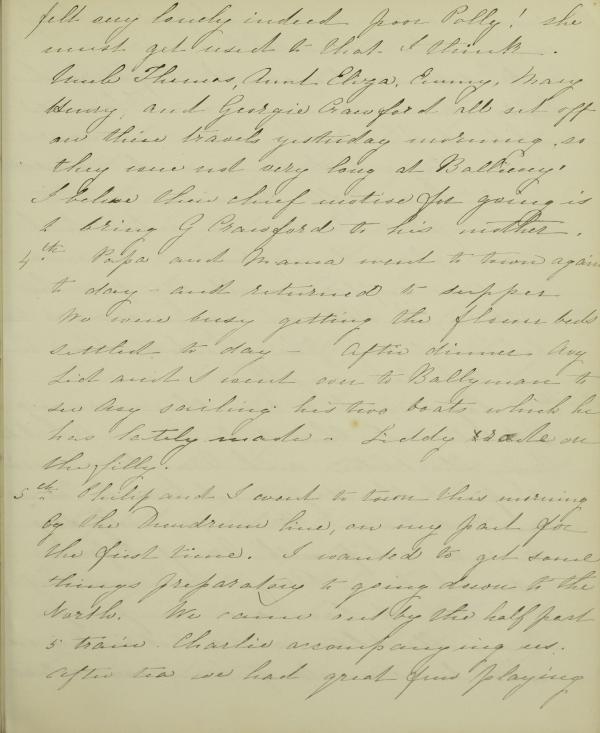 felt very lonely indeed poor Polly! she
must get used to that I think.
Uncle Thomas, Aunt Eliza, Emmy, Mary
Henry, and Georgie Crawford all set off
on their travels yesterday morning, so
they were not very long at
I believe their chief motive for going is
to bring G Crawford to his mother.
4th Papa and Mama went to town again
to day - and returned to supper
We were busy getting the flower beds
settled to day - After dinner Avy
Lid and I went over to Ballyman to
see Avy sailing his two boats which he
has lately made. Liddy rode on
the filly.
5th Philip and I went to town this morning
by the Dundrum line, on my part for
the first time. I wanted to get some
things preparatory to going down to the
North. We came out by the half past
5 train. Charlie accompanying us.
After tea we had great fun playing